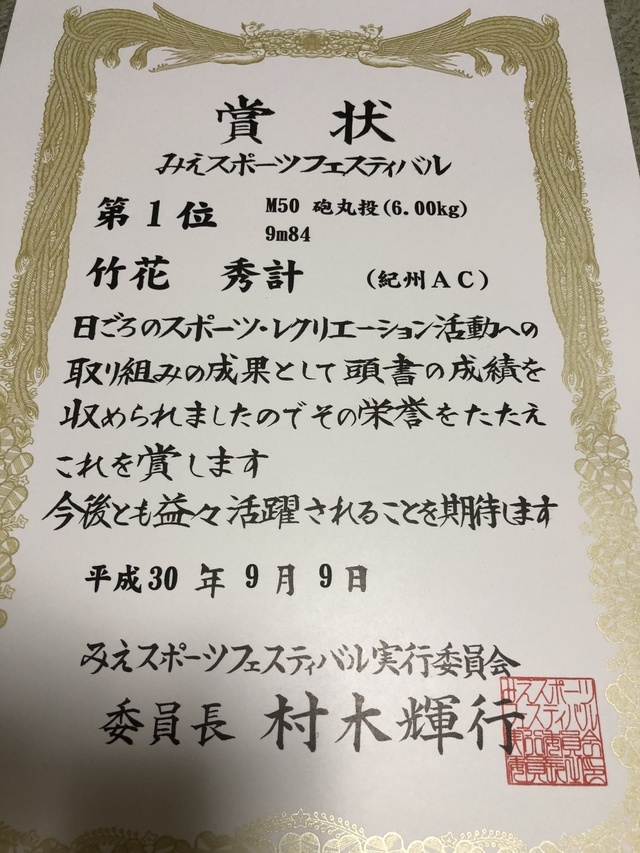 賞状
みえスポーツフェスティバル
第1位 M50 砲丸投(6.00kg)
9m84
竹花 秀計 (紀州AC)
日ごろのスポーツ・レクリエーション活動への
取り組みの成果として頭書の成績を
収められましたのでその栄誉をたたえ
これを賞します
今後とも益々活躍されることを期待します
平成30年9月9日
みえスポーツフェスティバル実行委員会
委員長 村木輝行
みえスポーツ
フェスティバル
実行委員会